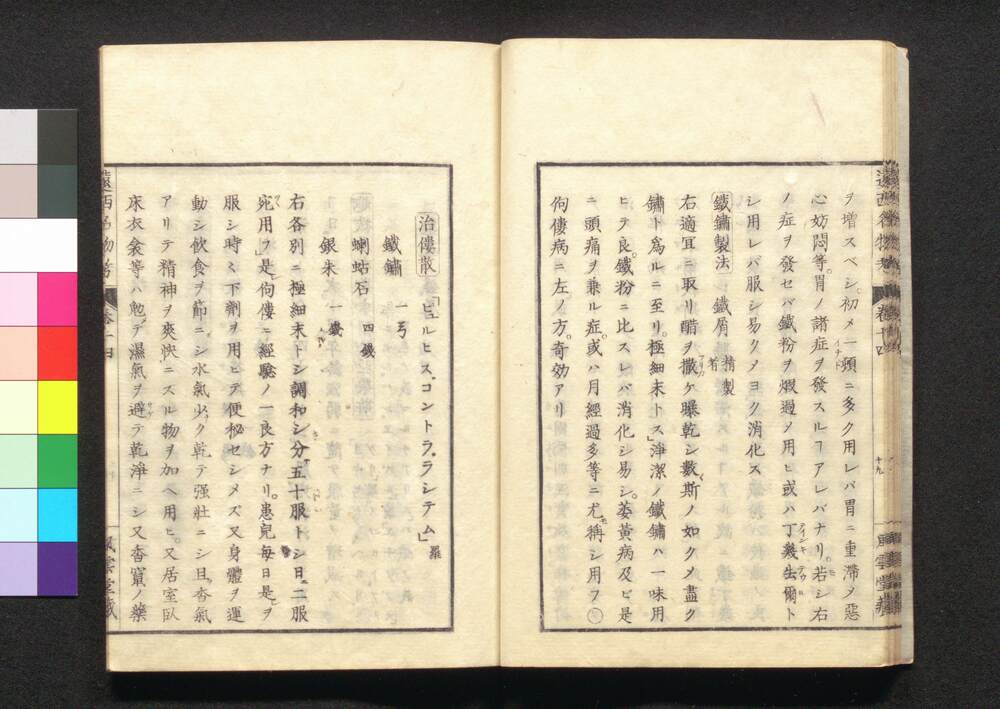 ヲ増スベシ初メ一頓ニ多ク用レバ胃ニ重滞メ惡
心妨悶等胃ノ諸症ヲ發スルヿアレバナリ若シ右
ノ症ヲ發セバ鐵粉ヲ煆過メ用ヒ或ハ丁幾失爾ト
シ用レバ服シ易クメヨク消化ス
鐵鏽製法 鐵屑 精製
右適宜ニ取リ醋ヲ撒ケ曝乾シ數斯ノ如クメ盡ク
鏽ト爲ルニ至リ極細末トス」浄潔ノ鐵鏽ハ一味用
ヒテ良鐵粉ニ比スレバ消化シ易シ萎黄病及ビ是
ニ頭痛ヲ兼ル症或ハ月經過多等ニ尤稱シ用フ
佝僂病ニ左ノ方奇効アリ
遠西名物考 卷十四 十九 風雲堂藏
治僂散 「ピュルヒスコンテラ、ラシテム」羅
鐵鏽 一弓
蜊蛄石 四
銀朱 一
右各別ニ極細末トシ調和シ分五十服トシ日二服
宛用フ」是佝僂ニ經驗ノ一良方ナリ患兒毎日是ヲ
服シ時々下劑ヲ用ヒテ便秘セシメズ又身體ヲ運
動シ飲食ヲ節ニシ水氣少ク乾テ强壮ニシ且香氣
アリテ精神ヲ爽快ニスル物ヲ加ヘ用ヒ又居室臥
床衣衾等ハ勉テ濕氣ヲ避テ乾淨ニシ又香竄ノ藥
遠西名物考 卷十四 風雲堂藏